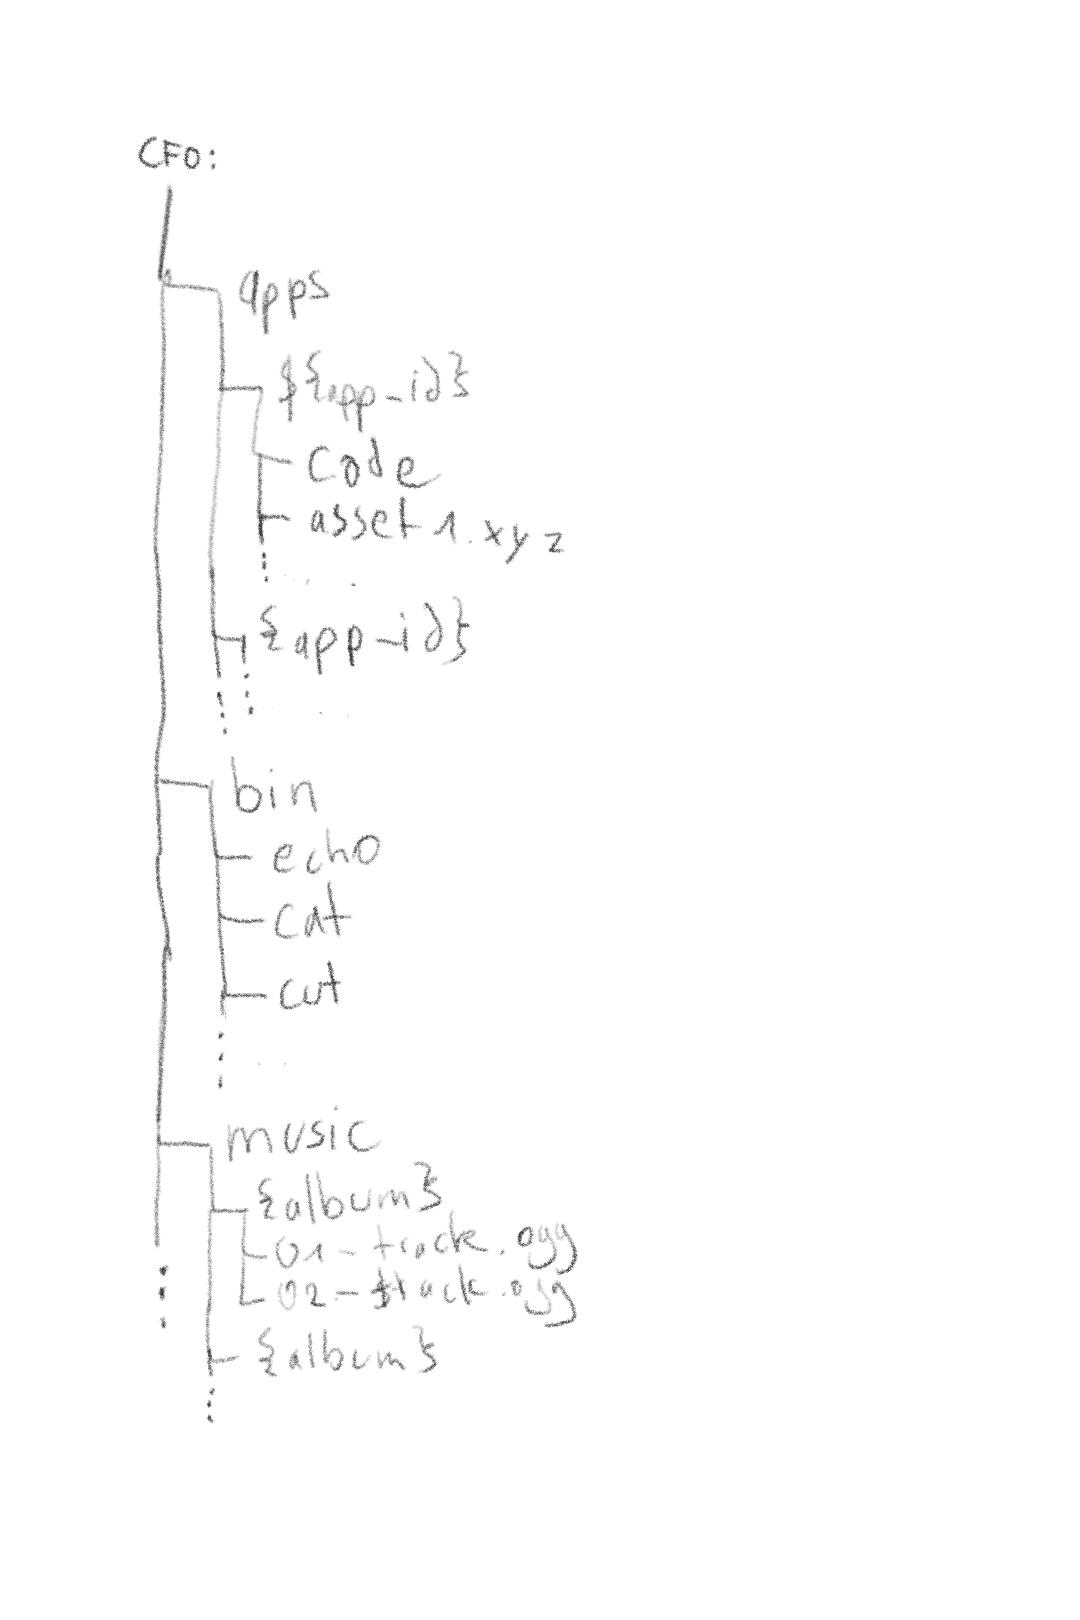 CF0:
apps
${app_id}
code
asset1.xyz
{app_id}
bin
echo
cat
cut
music
{album}
01-track.ogg
02-track.ogg
{album}